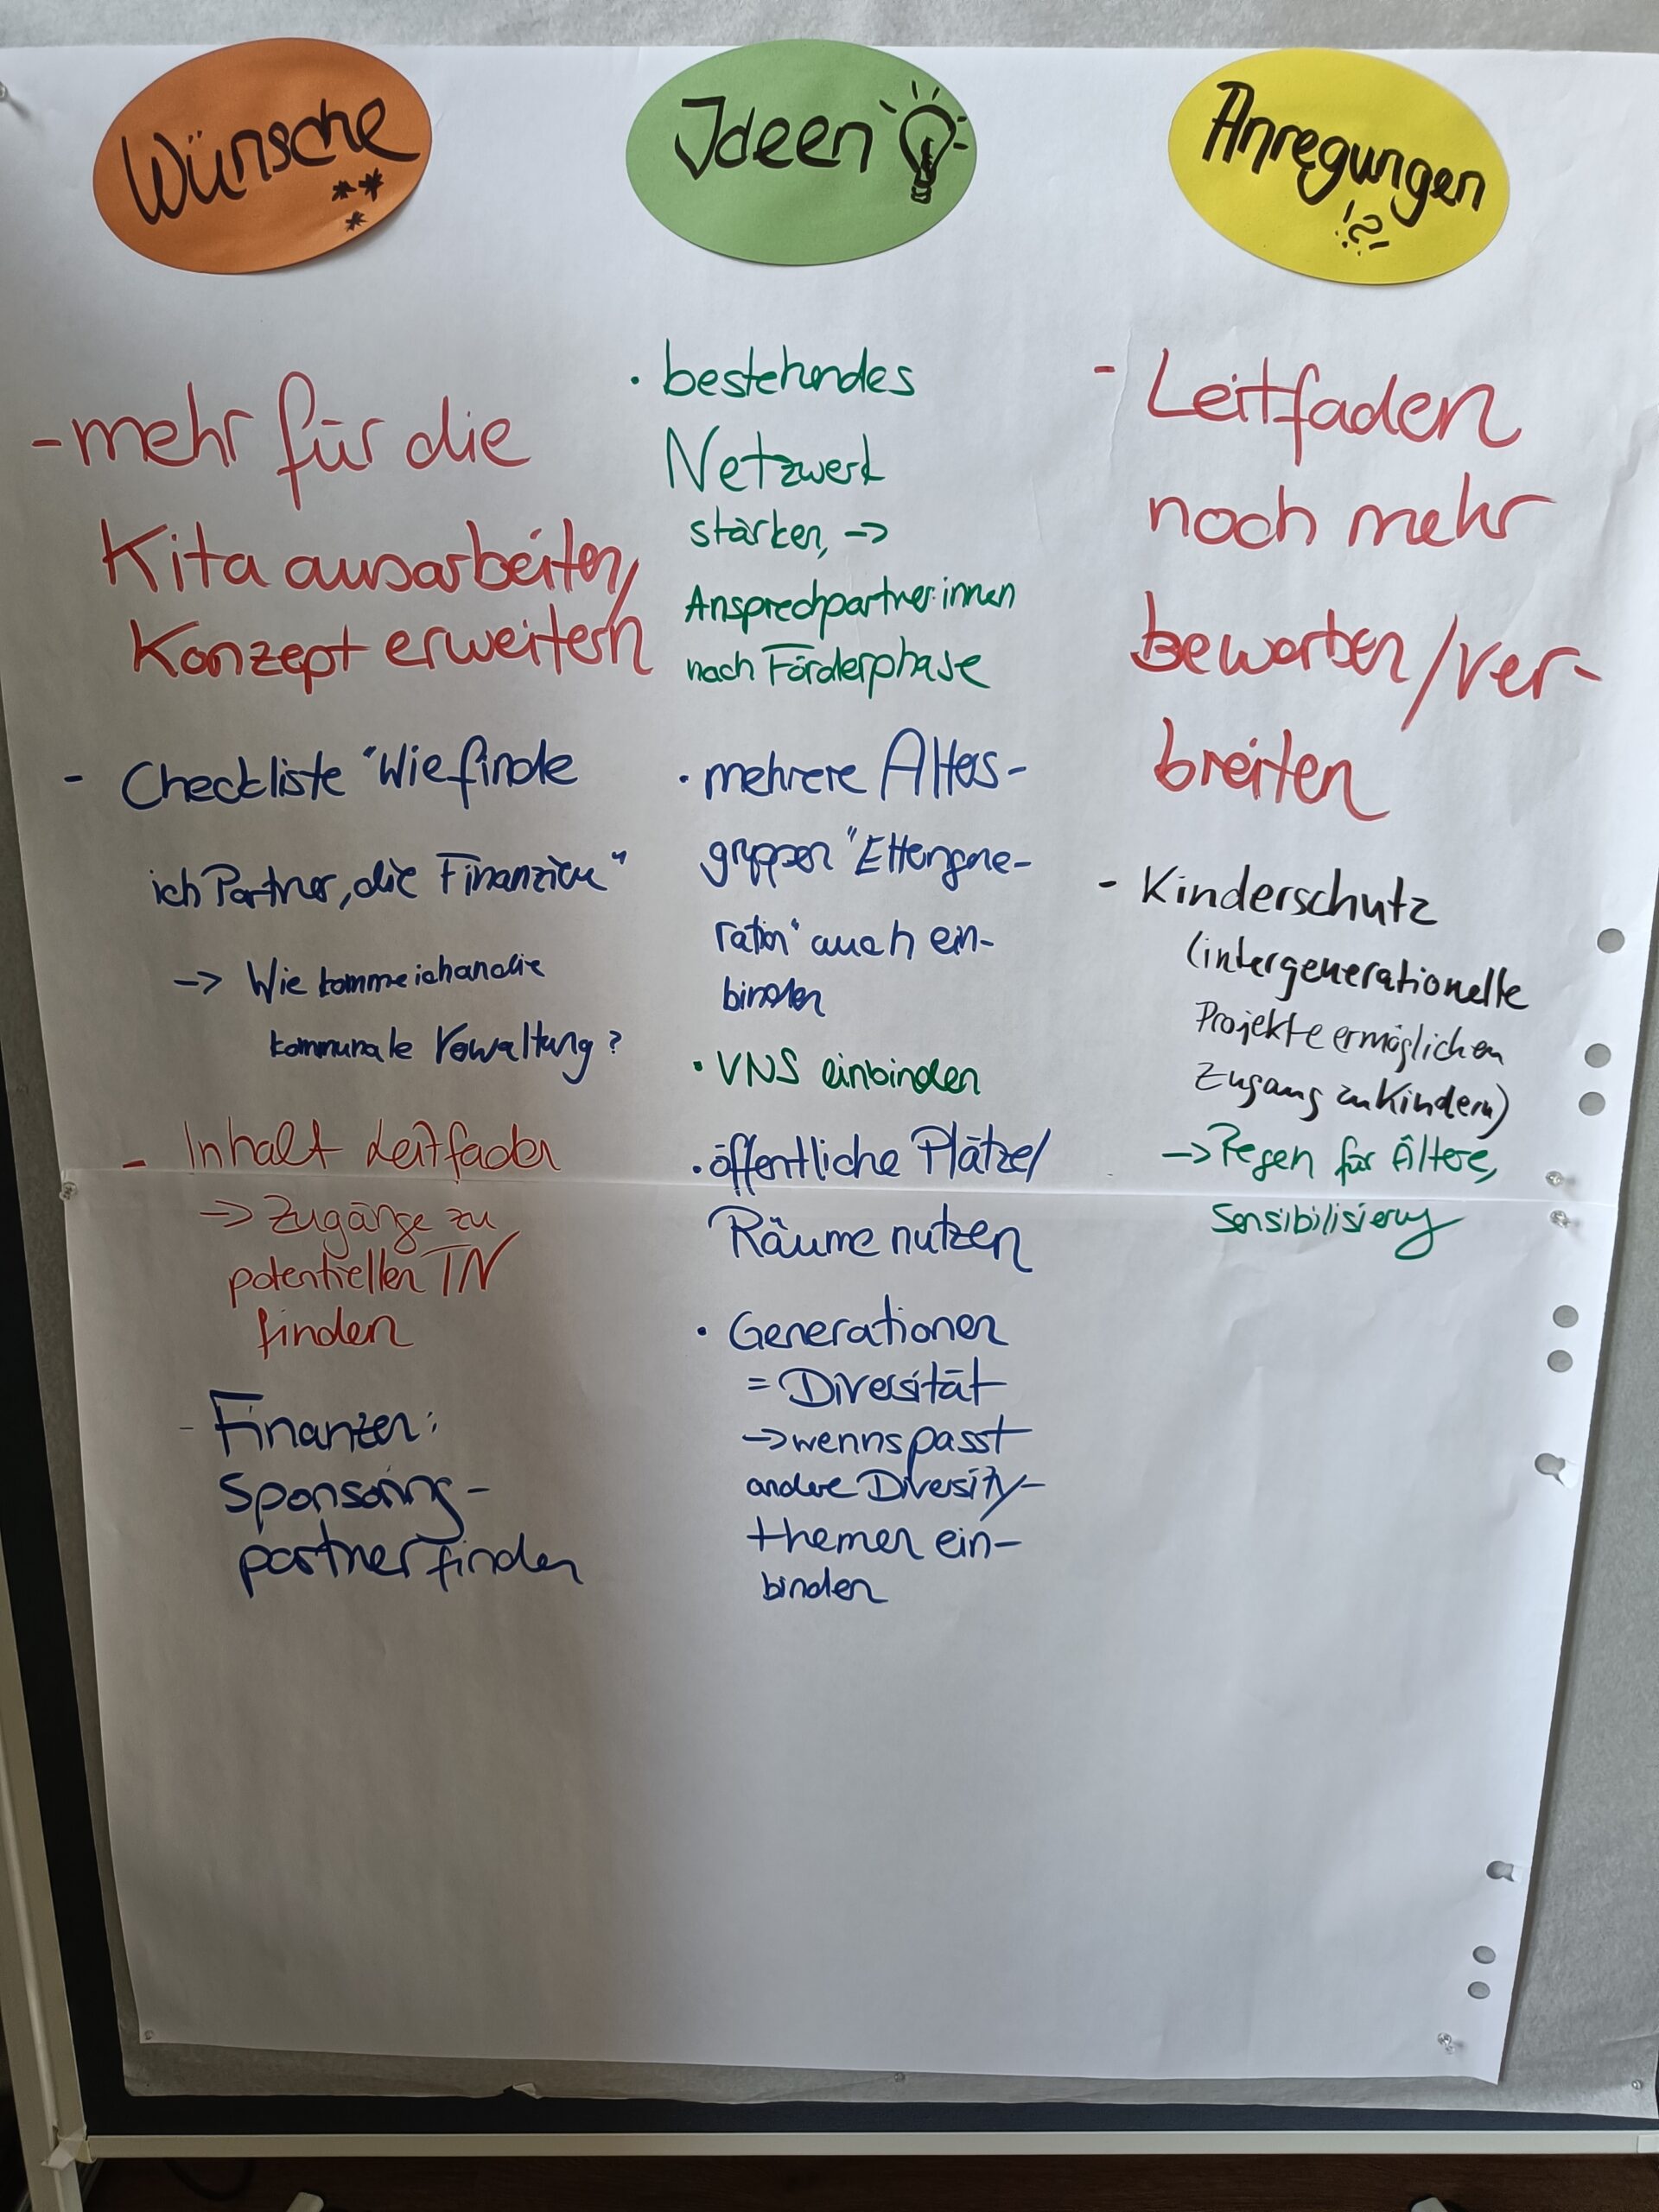 Wünsche
- mehr für die
Kita ausarbeiten/
Konzept erweitern
- Checkliste "Wie finde
ich Partner, die Finanzieren"
-> Wie komme ich an die
kommunale Verwaltung?
- Inhalt Leitfaden
-> Zugänge zu
potentiellen TN
finden
- Finanzen:
Sponsoring-
partner finden
Ideen
· bestehendes
Netzwerk
stärken, ->
Ansprechpartner:innen
nach Förderphase
· mehrere Alters-
gruppen "Elterngene-
ration" auch ein-
binden
· VNS einbinden
· öffentliche Plätze/
Räume nutzen
· Generationen
= Diversität
-> wenns passt
andere Diversity-
themen ein-
binden
Anregungen
!?
- Leitfaden
noch mehr
bewerben/ver-
breiten
- Kinderschutz
(intergenerationelle
Projekte ermöglichen
Zugang zu Kindern)
-> Regen für Ältere,
Sensibilisierung